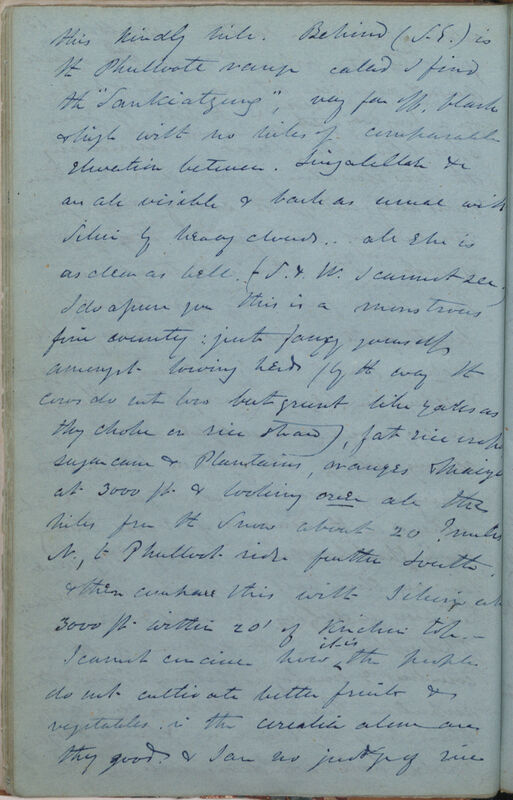 this kindly hill. Behind (S.E.) is
the Phulloote range called I find
the "Sankiatzung", very far off, black
& high with no hills of comparable
elevation between. Singalellah &c
are all visible & back as usual with
Sikim by heavy clouds... all else is
as clear as bell. (S. & W. I cannot see.)
I do assure you this is a monstrous
fine country: just fancy yourself
amongst lowing herds (by the way the
cows do not low but grunt like yaks as
they choke on rice straw), fat rice crops
sugar cane & Plantains, oranges & maize
at 3000 ft & looking over all the
hills from the Snow about 20 miles
N., to Phulloot ridge further South.
& then compare this with Sikim at
3000 ft within 20' of Kinchin
I cannot conceive how it is the people
do not cultivate better fruits &
vegetables. in the cerealia alone are
they good & I am no judge of rice